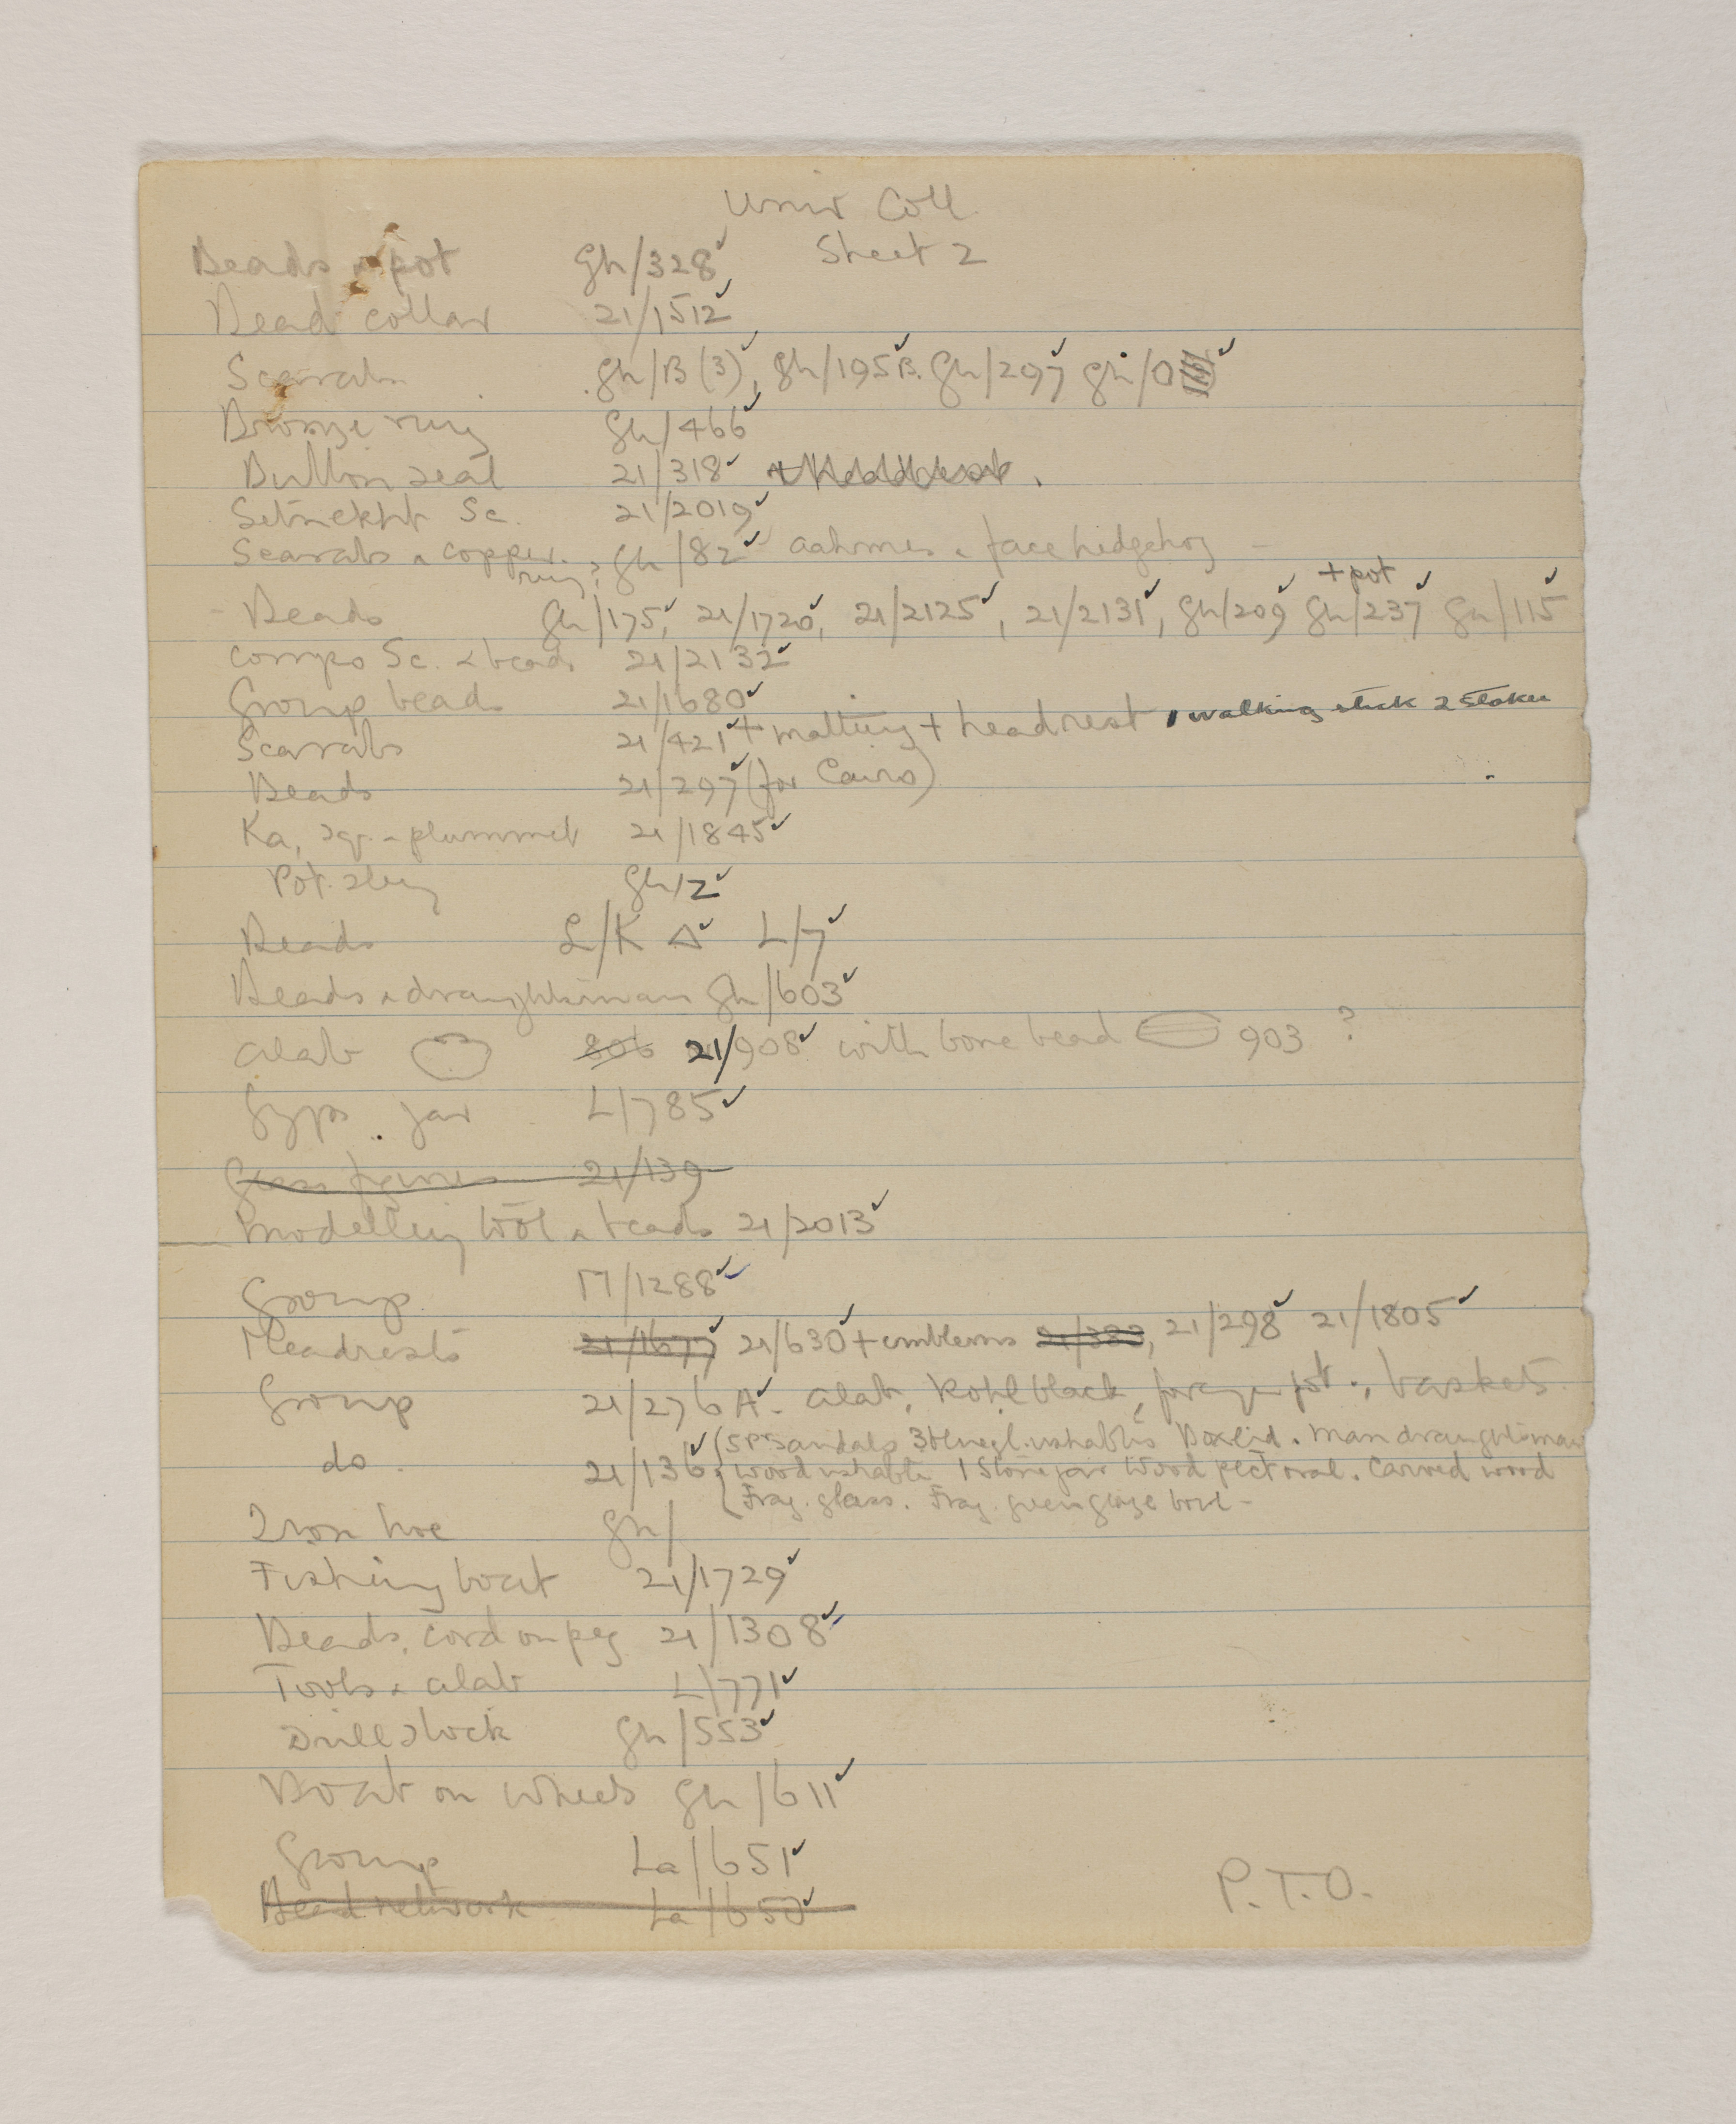 Univ Coll
Sheet 2
Beads & pot gh/328 ✓
Bead collar 21/1512 ✓
Scarabs gh/B (3) ✓, gh/195B ✓. gh/297 ✓ gh/0 ✓
Bronze ring gh/466 ✓
Button seal 21/318 ✓ + Headrest.
Setnekht Sc. 21/2019 ✓
Scarabs & copper ring? gh/82 ✓ aahmes & face hedgehog –
+ pot
Beads gh/175 ✓, 21/1720 ✓, 21/2125 ✓, 21/2131 ✓, gh/209 ✓ gh/237 ✓ gh/115 ✓
compo Sc. & beads 21/2132 ✓
Group beads 21/1680 ✓
Scarabs 21/421 ✓ + matting + headrest, walking stick 2
Beads 21/297 ✓ (for Cairo)
Ka, sq. & plummet 21/1845 ✓
Pot. gh/2 ✓
Beads L/K Δ ✓ L/7 ✓
Beads & draughtsman gh/603 ✓
alab 806 21/908 ✓ with bone bead 903 ?
Gyps. jar L/785 ✓
Glass figures 21/139
Modelling tool & beads 21/2013 ✓
Group 1288 ✓
Headrests 21/1677 ✓ 21/630 ✓ + emblems 21/383, 21/298 ✓ 21/1805 ✓
Group 21/276 A ✓ – alab, Kohl black, foreign pot., baskets
do. 21/136 ✓ (5 Pr Sandals 3 ushabtis Box lid. man draughtsman
wood ushabti 1 Stone jar Wood pectoral. Carved wood
Frag. glass. Frag. green glaze bowl –
Iron hoe gh/
Fishing boat 21/1729 ✓
Beads, cord on peg 21/1308 ✓
Tools & alab L/771 ✓
Drill stock gh/553 ✓
Boat on wheels gh/611 ✓
Group La/651 ✓
Bead network La/650 ✓
P.T.O.